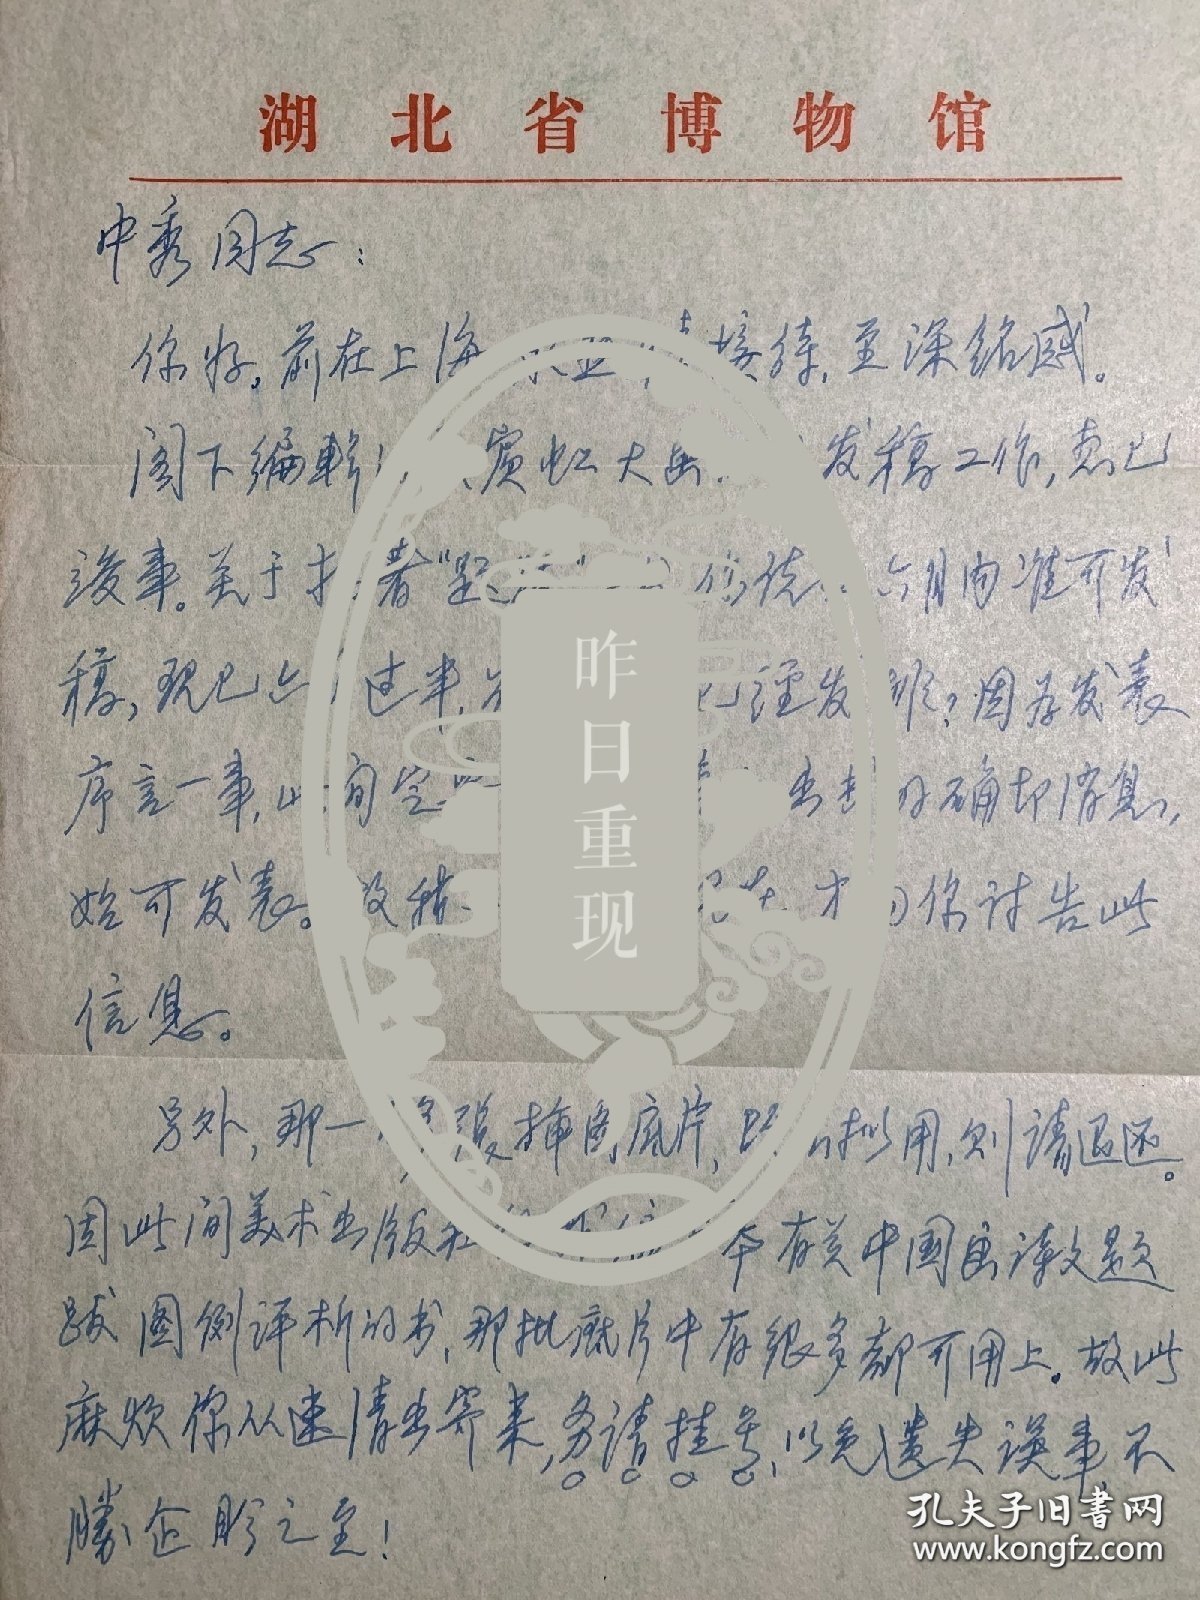 湖北省博物馆
中秀同志：
你好。前在上海 接待，至深铭感。
阁下编辑 宾虹大画 发稿工作，想已
竣事。关于拙著“题 六月内准可发
稿，现已六月过半， 已经发 ？因为发表
序言一事，此间 出 的确切消息，
始可发表。故 才向你讨告此
信息。
另外，那一 张插图底片， 拟用，则请退还。
因此间美术出版社 本有关中国画诗文题
跋图例评析的书，那批底片中有很多都可用上。故此
麻烦你从速清出寄来，务请挂号，以免遗失误事，不
胜企盼之至！
昨日重现
孔夫子旧书网
www.kongfz.com